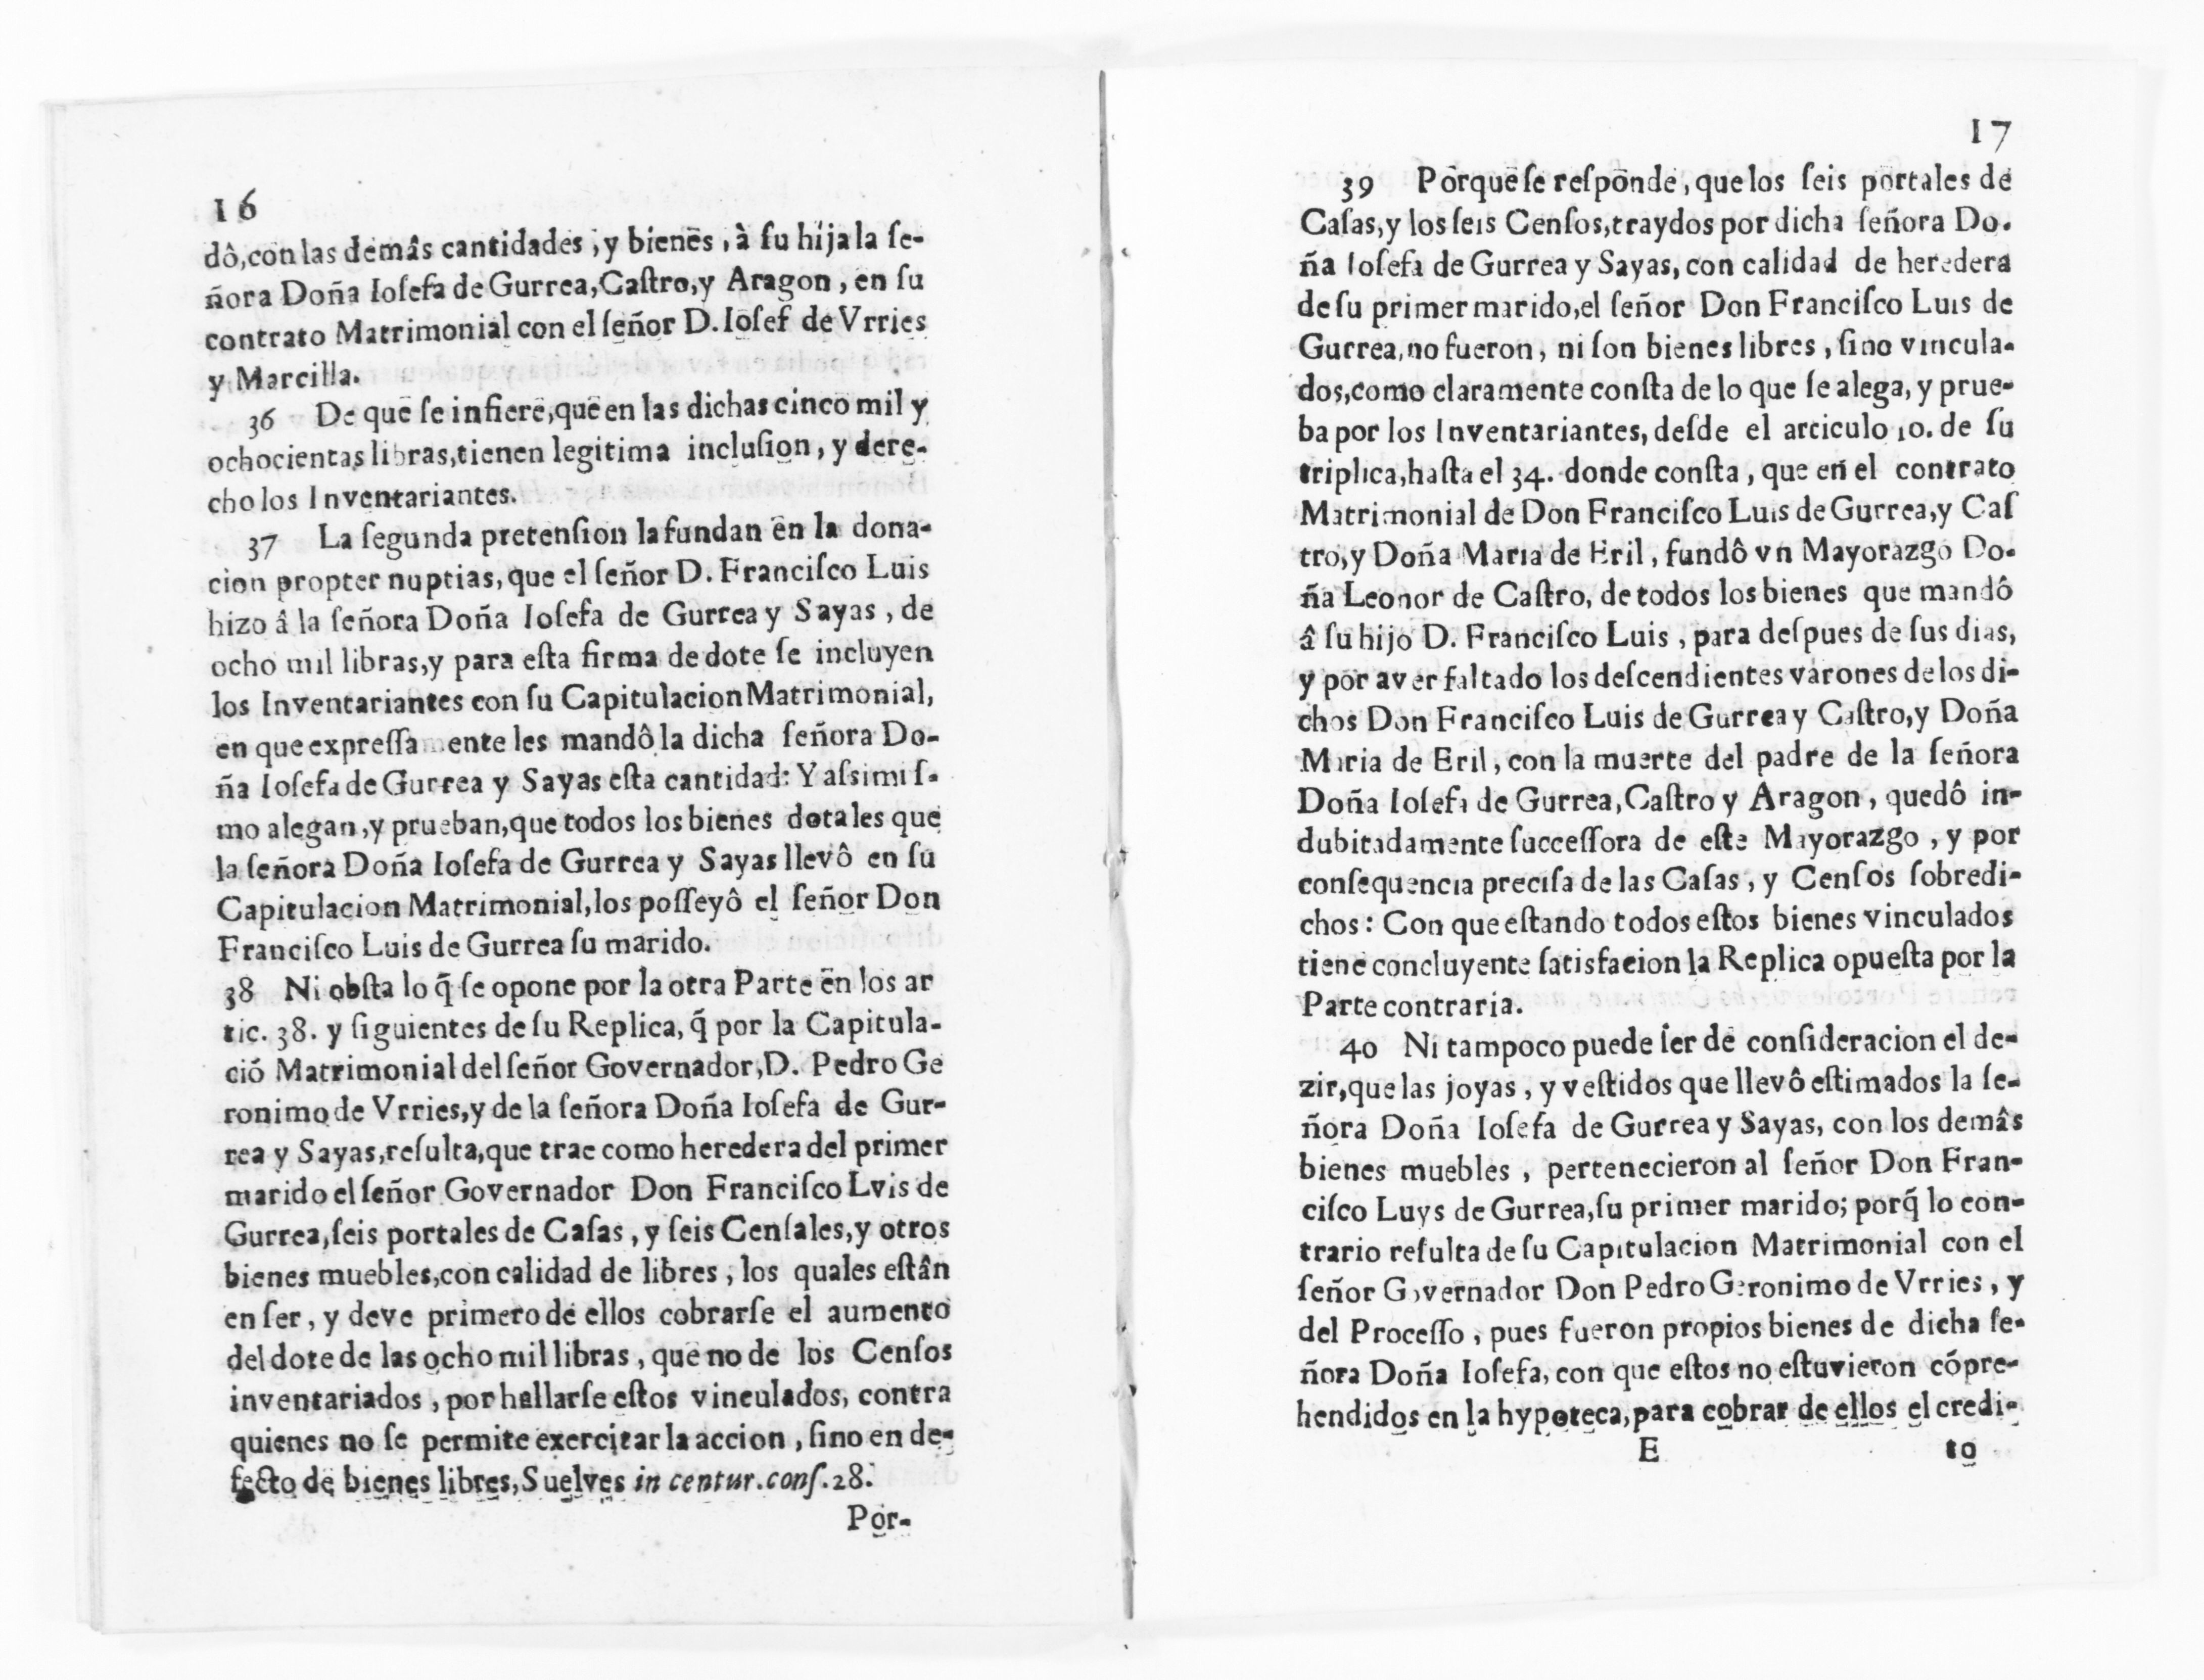 16
dô,con las demâs cantidades, y bienes, à ſu hija la ſe-
ñora Doña Ioſefa de Gurrea,Caſtro,y Aragon, en ſu
contrato Matrimonial con el ſeñor D. Ioſef de Vrries
y Marcilla.
36 De que ſe infiere,que en las dichas cinco mil y
ochocientas libras,tienen legitima incluſion, y dere-
cho los Inventariantes.
37 La ſegunda pretenſion la fundan en la dona-
cion propter nuptias, que el ſeñor D. Franciſco Luis
hizo â la ſeñora Doña Ioſefa de Gurrea y Sayas, de
ocho mil libras,y para eſta firma de dote ſe incluyen
los Inventariantes con ſu Capitulacion Matrimonial,
en que expreſſamente les mandô la dicha ſeñora Do-
ña Ioſefa de Gurrea y Sayas eſta cantidad: Y aſsimiſ-
mo alegan,y prueban,que todos los bienes dotales que
la ſeñora Doña Ioſefa de Gurrea y Sayas llevô en ſu
Capitulacion Matrimonial,los poſſeyô el ſeñor Don
Franciſco Luis de Gurrea ſu marido.
38 Ni obſta lo q̃ ſe opone por la otra Parte en los ar
tic. 38. y ſiguientes de ſu Replica, q̃ por la Capitula-
ció Matrimonial del ſeñor Governador,D. Pedro Ge
ronimo de Vrries,y de la ſeñora Doña Ioſefa de Gur-
rea y Sayas,reſulta,que trae como heredera del primer
marido el ſeñor Governador Don Franciſco Lvis de
Gurrea,ſeis portales de Caſas, y ſeis Cenſales,y otros
bienes muebles,con calidad de libres, los quales eſtân
en ſer, y deve primero de ellos cobrarſe el aumento
del dote de las ocho mil libras, que no de los Cenſos
inventariados, por hallarſe eſtos vinculados, contra
quienes no ſe permite exercitar la accion, ſino en de-
fecto de bienes libres,Suelves in centur.conſ.28.
Por-
17
39 Porque ſe reſponde, que los ſeis portales de
Caſas,y los ſeis Cenſos,traydos por dicha ſeñora Do-
ña Ioſefa de Gurrea y Sayas, con calidad de heredera
de ſu primer marido,el ſeñor Don Franciſco Luis de
Gurrea,no fueron, ni ſon bienes libres, ſino vincula-
dos,como claramente conſta de lo que ſe alega, y prue-
ba por los Inventariantes, deſde el articulo 10. de ſu
triplica,haſta el 34. donde conſta, que en el contrato
Matrimonial de Don Franciſco Luis de Gurrea,y Caſ
tro,y Doña Maria de Eril, fundô vn Mayorazgo Do-
ña Leonor de Caſtro, de todos los bienes que mandô
â ſu hijo D. Franciſco Luis, para deſpues de ſus dias,
y por aver faltado los deſcendientes varones de los di-
chos Don Franciſco Luis de Gurrea y Caſtro,y Doña
Maria de Eril, con la muerte del padre de la ſeñora
Doña Ioſefa de Gurrea,Caſtro y Aragon, quedô in-
dubitadamente ſucceſſora de eſte Mayorazgo, y por
conſequencia preciſa de las Caſas, y Cenſos ſobredi-
chos: Con que eſtando todos eſtos bienes vinculados
tiene concluyente ſatisfacion la Replica opueſta por la
Parte contraria.
40 Ni tampoco puede ſer de conſideracion el de-
zir,que las joyas, y veſtidos que llevô eſtimados la ſe-
ñora Doña Ioſefa de Gurrea y Sayas, con los demâs
bienes muebles, pertenecieron al ſeñor Don Fran-
ciſco Luys de Gurrea,ſu primer marido; porq̃ lo con-
trario reſulta de ſu Capitulacion Matrimonial con el
ſeñor Governador Don Pedro Geronimo de Vrries, y
del Proceſſo, pues fueron propios bienes de dicha ſe-
ñora Doña Ioſefa, con que eſtos no eſtuvieron cópre-
hendidos en la hypoteca,para cobrar de ellos el credi-
E to